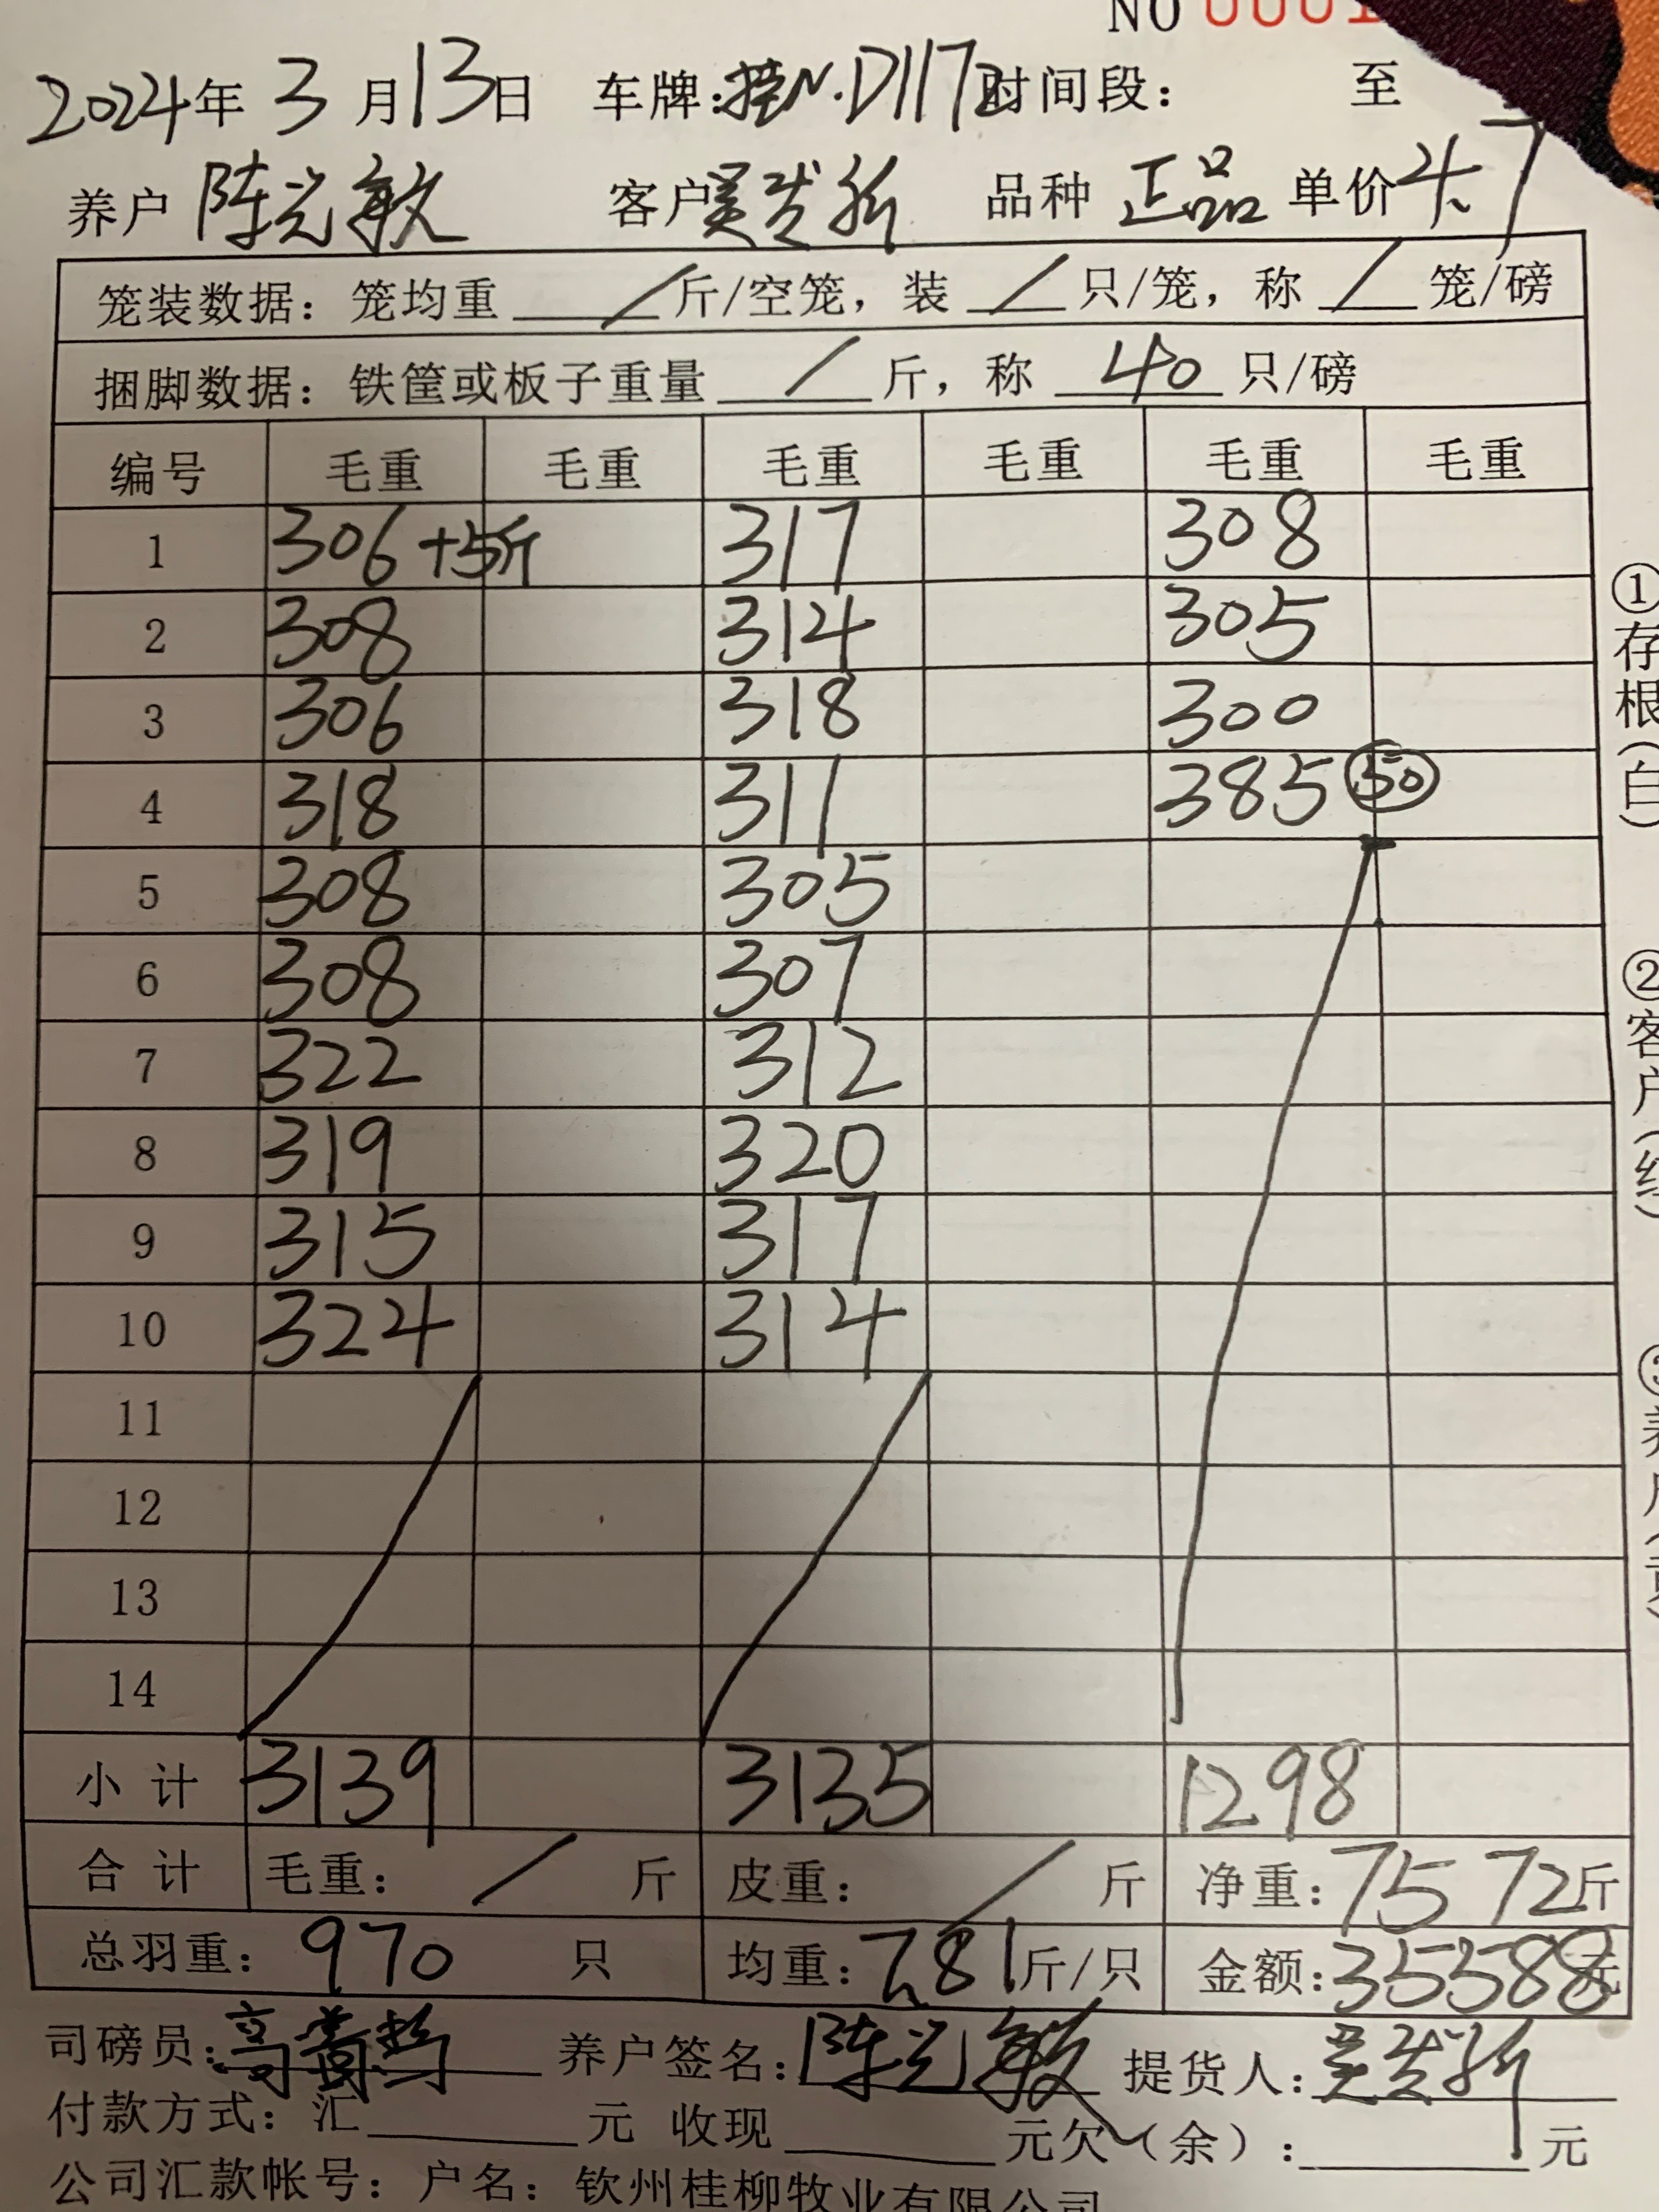 NO 0001
2024年 3 月 13日 车牌:桂N.D1172 时间段: 至
养户 陈光敏 客户 吴发新 品种 正品 单价 4.7
笼装数据: 笼均重 / 斤/空笼, 装 / 只/笼, 称 / 笼/磅
捆脚数据: 铁筐或板子重量 / 斤, 称 40 只/磅
编号 毛重 毛重 毛重 毛重 毛重 毛重
1 306+5斤 317 308
2 308 314 305
3 306 318 300
4 318 311 385 50
5 308 305
6 308 307
7 322 312
8 319 320
9 315 317
10 324 314
11
12
13
14
小计 3139 3135 1298
合计 毛重: / 斤 皮重: / 斤 净重: 7572斤
总羽重: 970 只 均重: 7.81斤/只 金额: 35588元
司磅员: 养户签名: 陈光敏 提货人: 吴发新
付款方式: 汇 元 收现 元欠(余): 元
公司汇款帐号: 户名: 钦州桂柳牧业有限公司
①存根(白)
②客户(红)
③养户(黄)